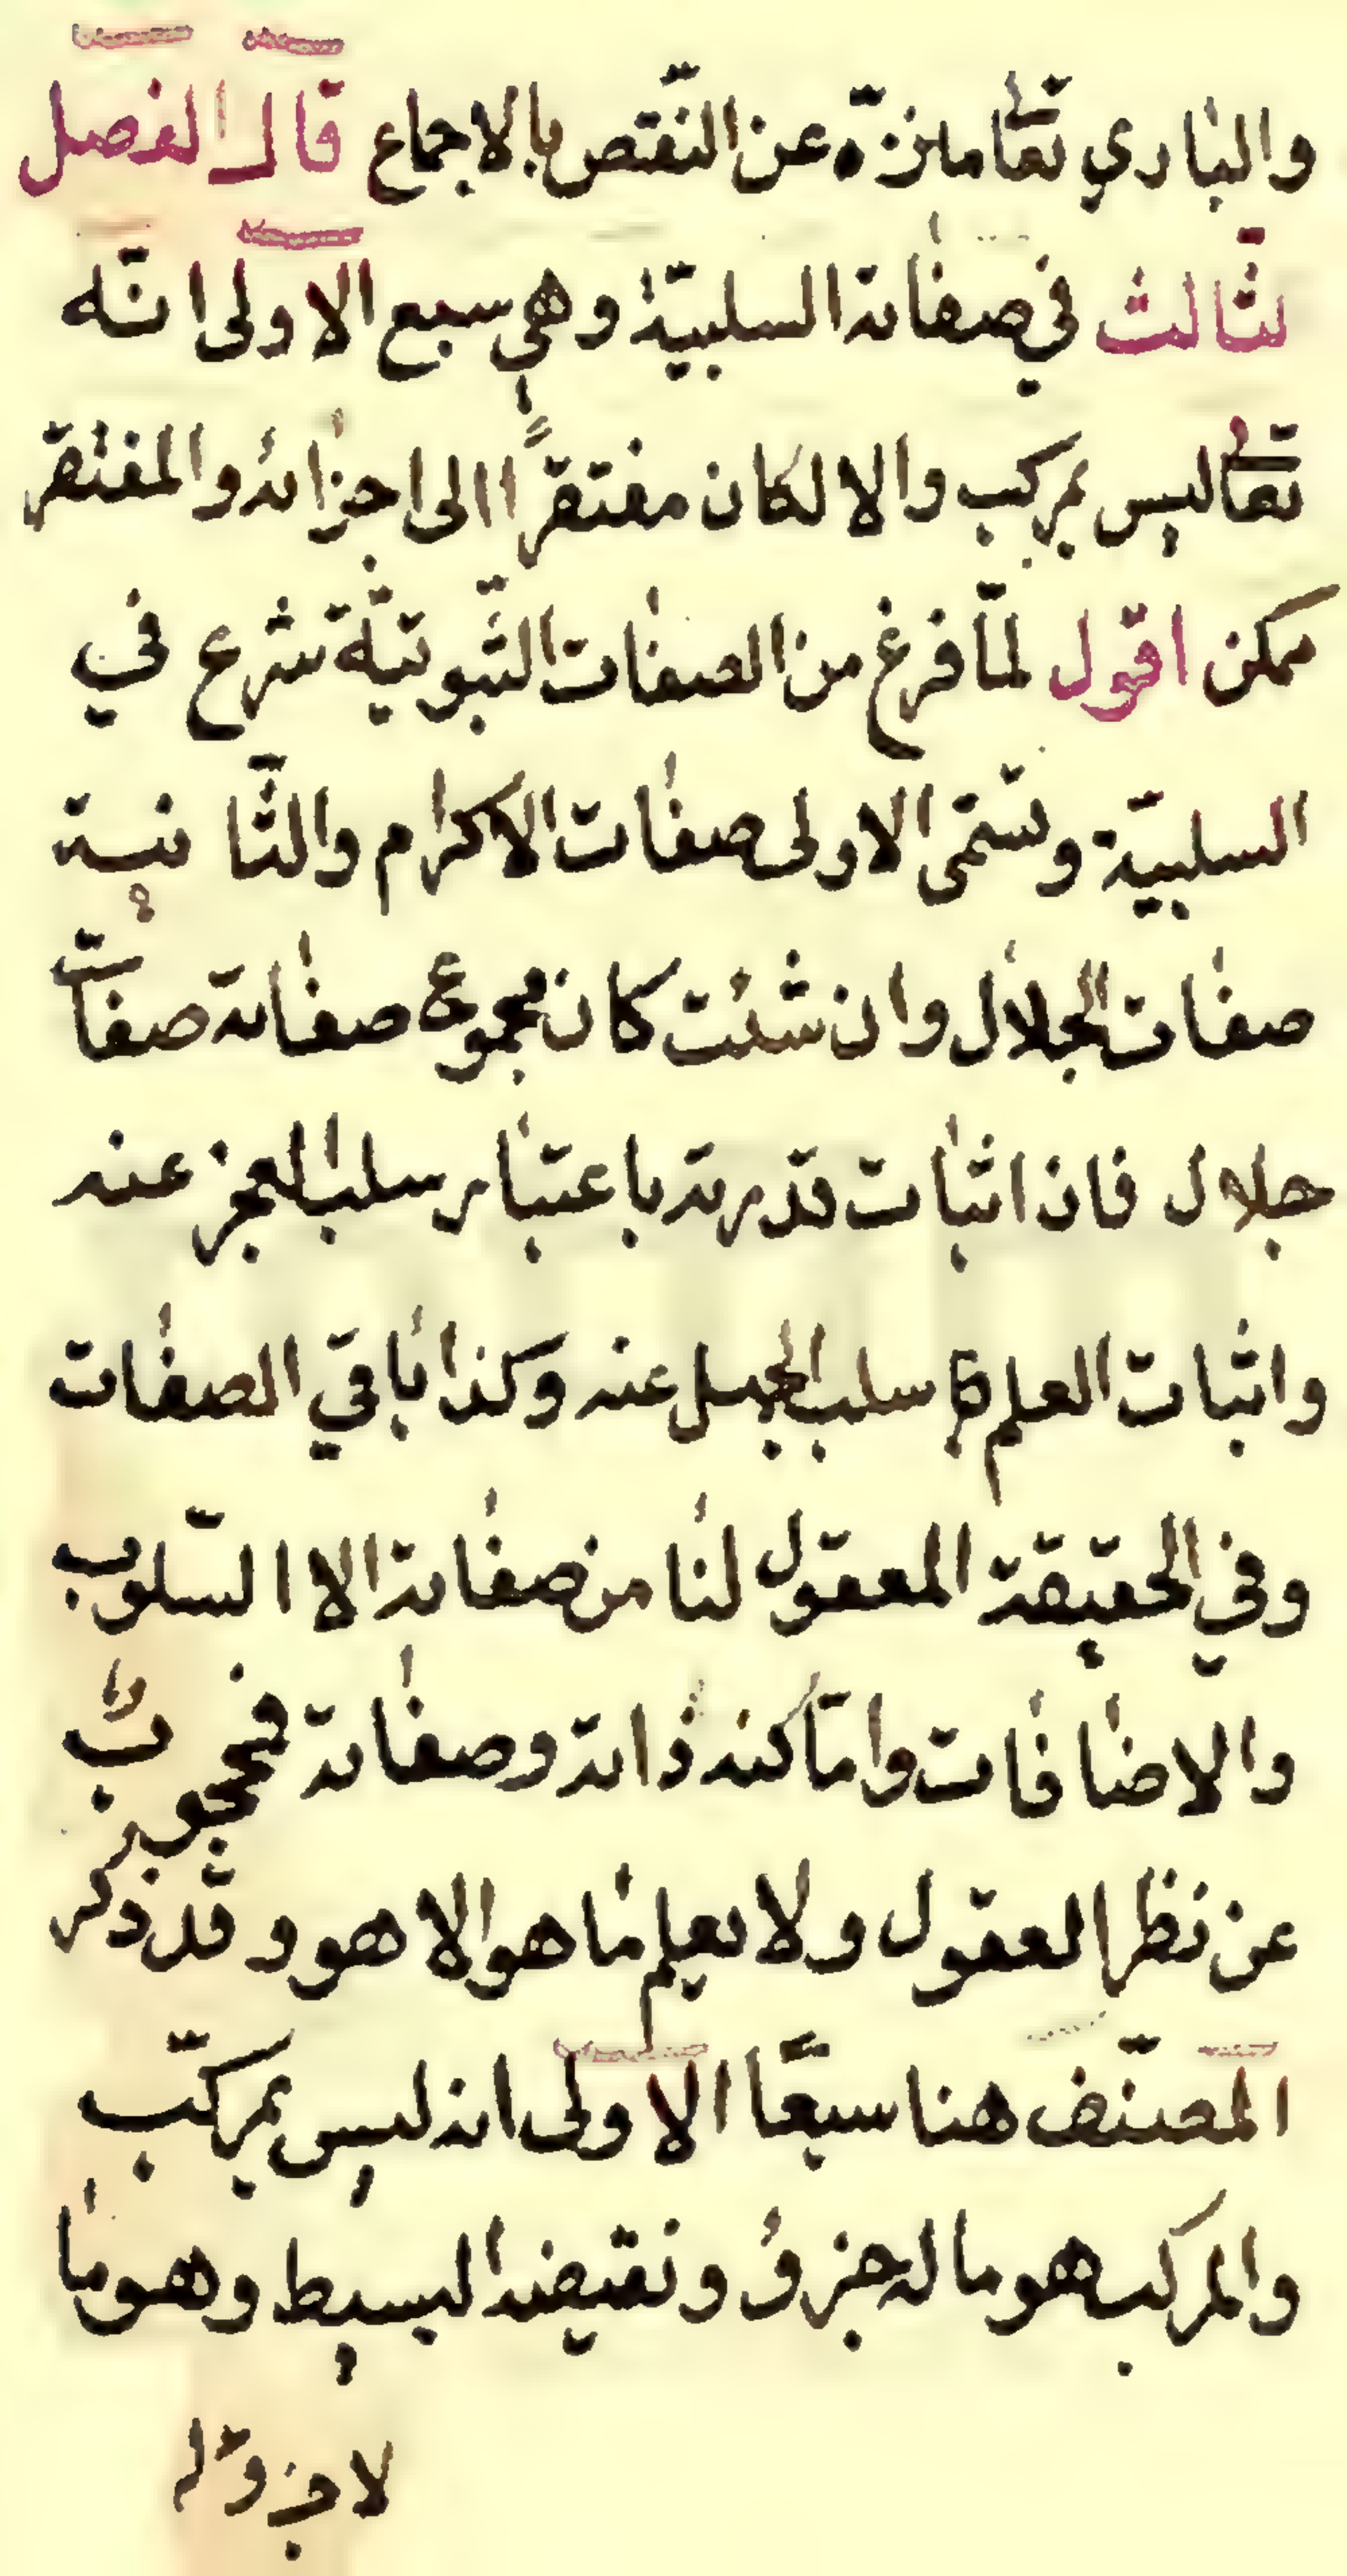 والباري تعا منزّه عن النّقص بالاجماع قال الفصل
لثّالث في صفاته السلبيّة وهي سبع الاولى انّه
تعا ليس بمركب والا لكان مفتقرًا الى اجزائه والمفتقر
ممكن اقول لمّا فرغ من الصفات الثّبوتيّة شرع في
السلبيّة وتسمّى الاولى صفات الاكرام والثّانية
صفات الجلال وان شئت كان مجموع صفاته صفات
جلال فان اثبات قدرته باعتبار سلب العجز عنه
واثبات العلم با سلب الجهل عنه وكذا باقي الصفات
وفي الحقيقة المعقول لنا من صفاته الا السّلوب
والاضافات وامّا كنه ذاته وصفاته فمحجوب
عن نظر العقول ولا يعلم ما هو الا هو وقد ذكر
المصنّف هنا سبعًا الاولى انه ليس بمركّب
والمركب هو ما له جزؤ ونقيضه البسيط وهو ما
لا جزؤ له